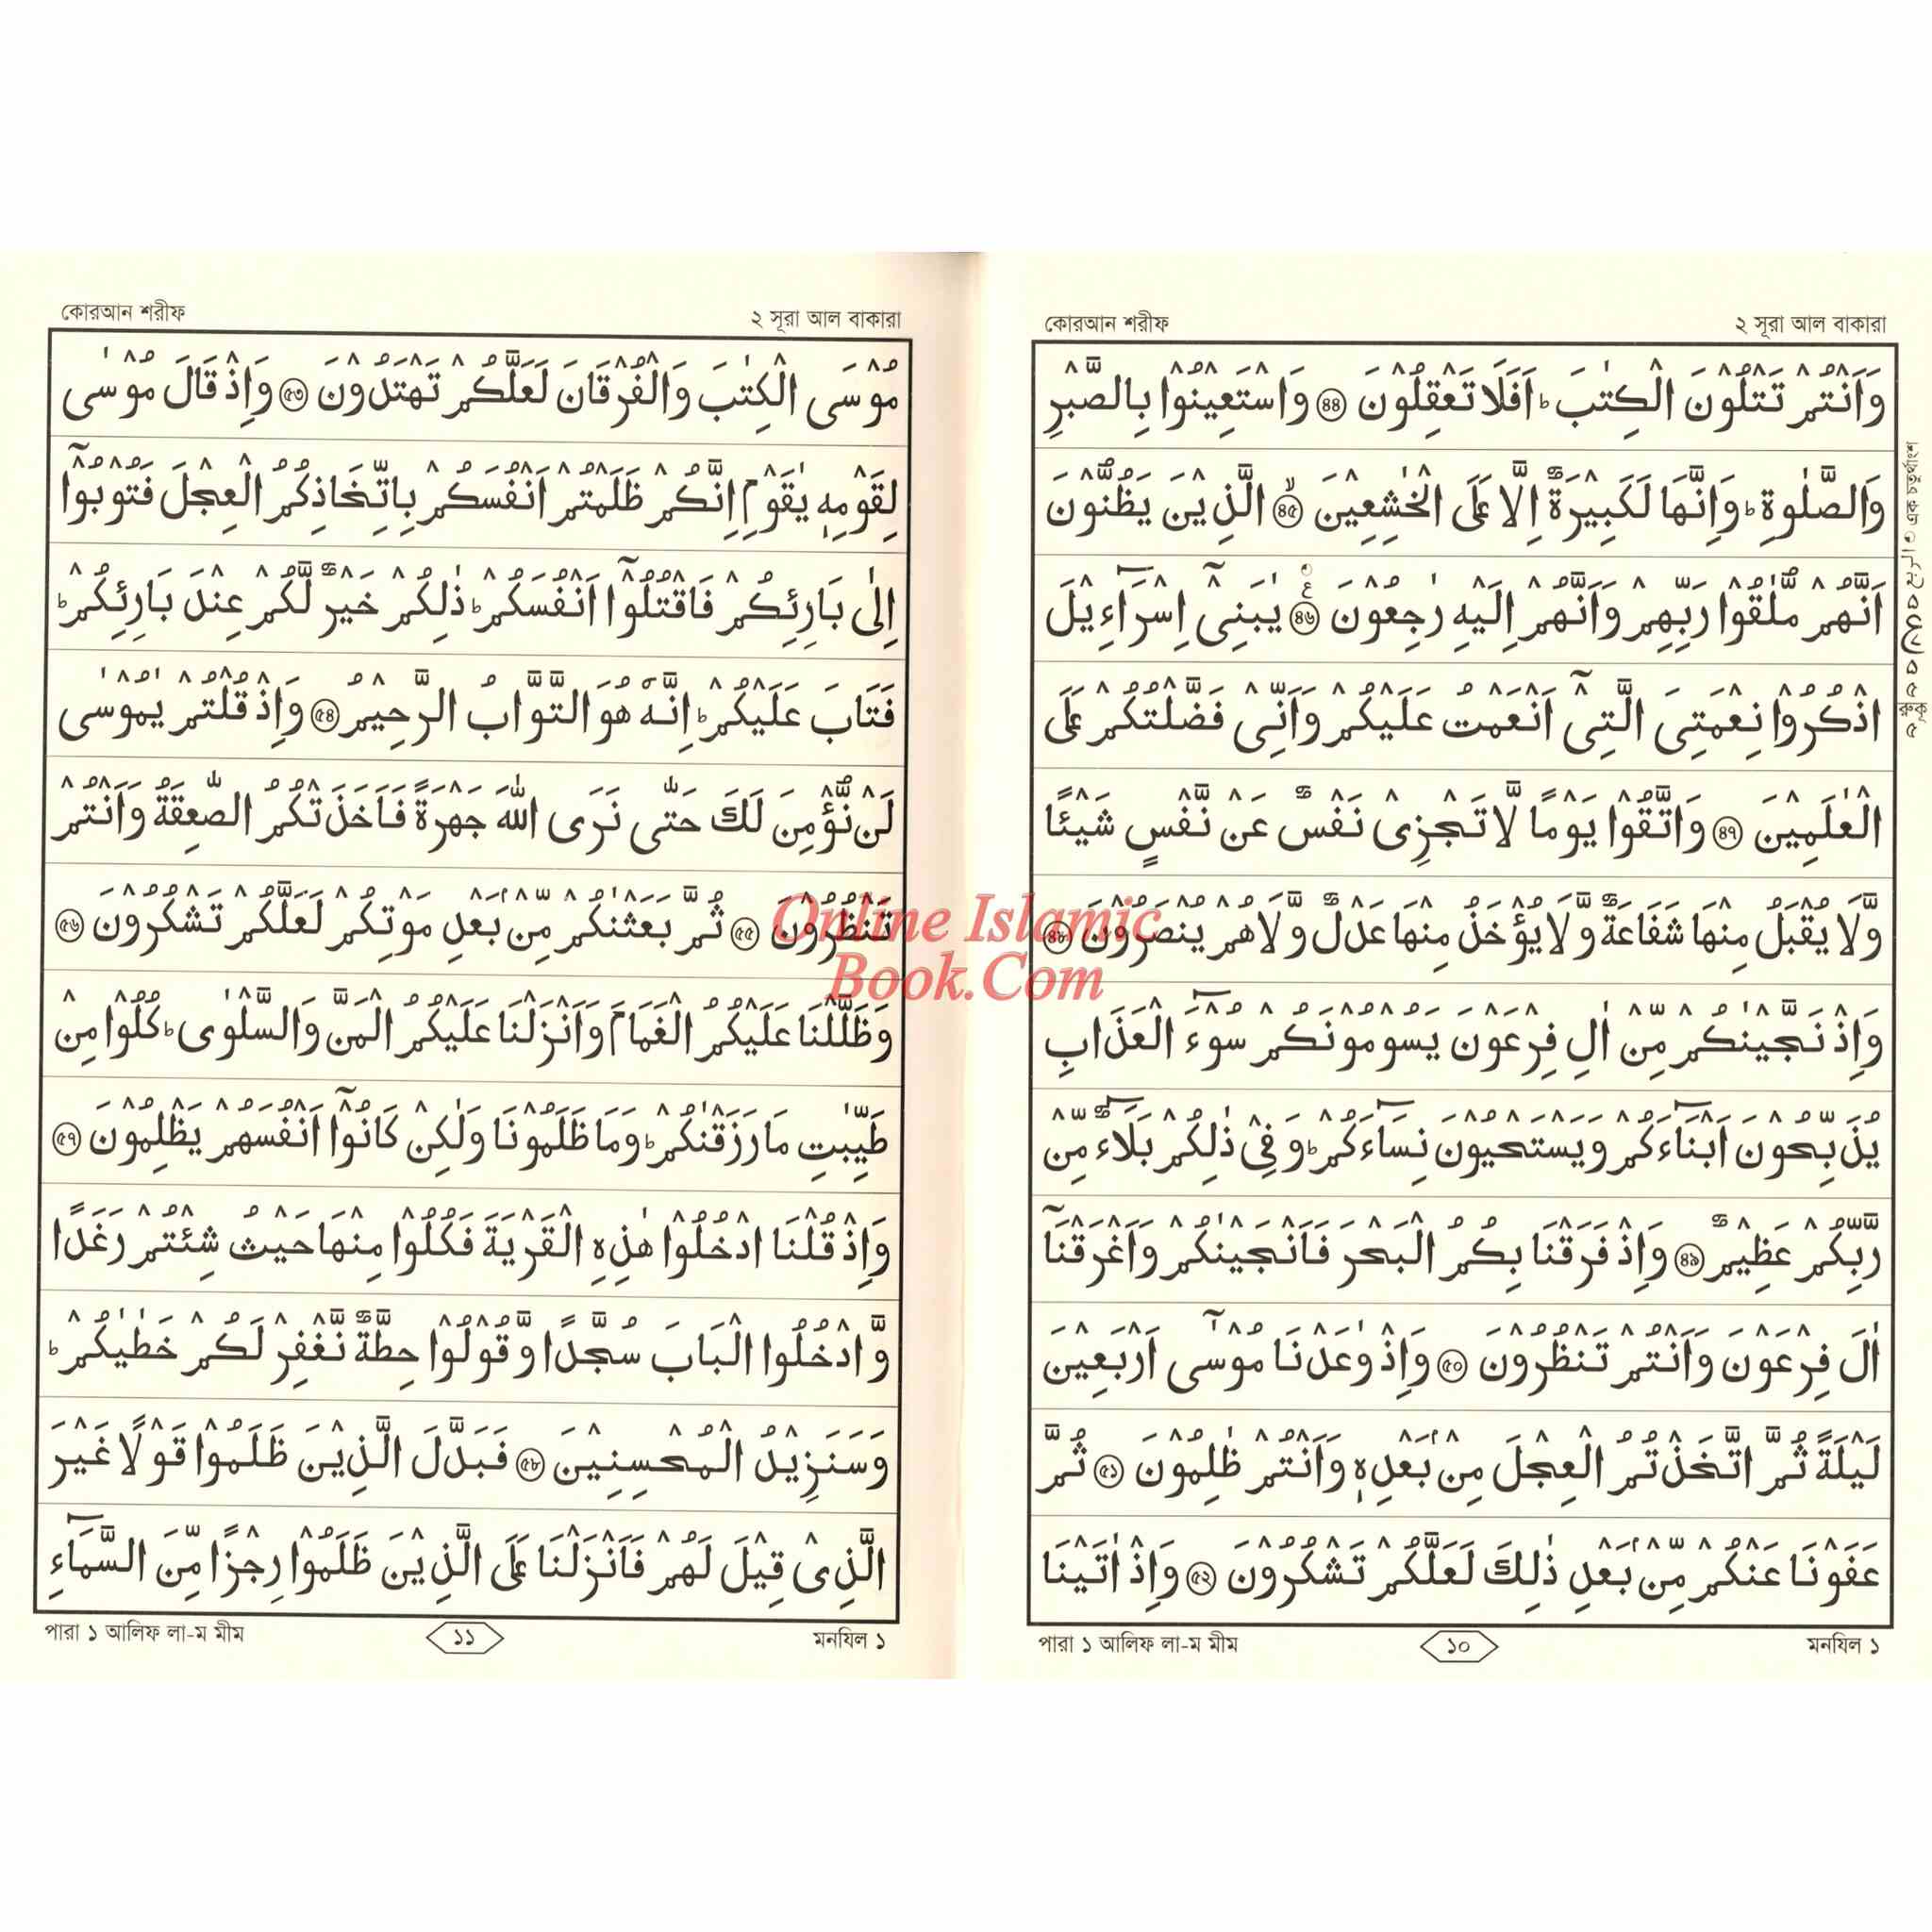 কোরআন শরীফ
২ সূরা আল বাকারা
وَاَنْتُمْ تَتْلُوْنَ الْكِتٰبَ ؕ اَفَلَا تَعْقِلُوْنَ ﴿৪৪﴾ وَاسْتَعِيْنُوْا بِالصَّبْرِ
وَالصَّلٰوةِ ؕ وَاِنَّهَا لَكَبِيْرَةٌ اِلَّا عَلَى الْخٰشِعِيْنَ ﴿৪৫﴾ الَّذِيْنَ يَظُنُّوْنَ
اَنَّهُمْ مُّلٰقُوْا رَبِّهِمْ وَاَنَّهُمْ اِلَيْهِ رٰجِعُوْنَ ﴿৪৬﴾ يٰبَنِيْٓ اِسْرَآءِيْلَ
اذْكُرُوْا نِعْمَتِيَ الَّتِيْٓ اَنْعَمْتُ عَلَيْكُمْ وَاَنِّيْ فَضَّلْتُكُمْ عَلَى
الْعٰلَمِيْنَ ﴿৪৭﴾ وَاتَّقُوْا يَوْمًا لَّا تَجْزِىْ نَفْسٌ عَنْ نَّفْسٍ شَيْئًا
وَّلَا يُقْبَلُ مِنْهَا شَفَاعَةٌ وَّلَا يُؤْخَذُ مِنْهَا عَدْلٌ وَّلَا هُمْ يُنْصَرُوْنَ ﴿৪৮﴾
وَاِذْ نَجَّيْنٰكُمْ مِّنْ اٰلِ فِرْعَوْنَ يَسُوْمُوْنَكُمْ سُوْٓءَ الْعَذَابِ
يُذَبِّحُوْنَ اَبْنَآءَكُمْ وَيَسْتَحْيُوْنَ نِسَآءَكُمْ ؕ وَفِيْ ذٰلِكُمْ بَلَآءٌ مِّنْ
رَّبِّكُمْ عَظِيْمٌ ﴿৪৯﴾ وَاِذْ فَرَقْنَا بِكُمُ الْبَحْرَ فَاَنْجَيْنٰكُمْ وَاَغْرَقْنَآ
اٰلَ فِرْعَوْنَ وَاَنْتُمْ تَنْظُرُوْنَ ﴿৫০﴾ وَاِذْ وٰعَدْنَا مُوْسٰٓى اَرْبَعِيْنَ
لَيْلَةً ثُمَّ اتَّخَذْتُمُ الْعِجْلَ مِنْۢ بَعْدِهٖ وَاَنْتُمْ ظٰلِمُوْنَ ﴿৫১﴾ ثُمَّ
عَفَوْنَا عَنْكُمْ مِّنْۢ بَعْدِ ذٰلِكَ لَعَلَّكُمْ تَشْكُرُوْنَ ﴿৫২﴾ وَاِذْ اٰتَيْنَا
পারা ১ আলিফ লা-ম মীম
১০
মনযিল ১
রুকু ৫
কোরআন শরীফ
২ সূরা আল বাকারা
مُوْسَى الْكِتٰبَ وَالْفُرْقَانَ لَعَلَّكُمْ تَهْتَدُوْنَ ﴿৫৩﴾ وَاِذْ قَالَ مُوْسٰى
لِقَوْمِهٖ يٰقَوْمِ اِنَّكُمْ ظَلَمْتُمْ اَنْفُسَكُمْ بِاتِّخَاذِكُمُ الْعِجْلَ فَتُوْبُوْٓا
اِلٰى بَارِئِكُمْ فَاقْتُلُوْٓا اَنْفُسَكُمْ ؕ ذٰلِكُمْ خَيْرٌ لَّكُمْ عِنْدَ بَارِئِكُمْ ؕ
فَتَابَ عَلَيْكُمْ ؕ اِنَّهٗ هُوَ التَّوَّابُ الرَّحِيْمُ ﴿৫৪﴾ وَاِذْ قُلْتُمْ يٰمُوْسٰى
لَنْ نُّؤْمِنَ لَكَ حَتّٰى نَرَى اللّٰهَ جَهْرَةً فَاَخَذَتْكُمُ الصّٰعِقَةُ وَاَنْتُمْ
تَنْظُرُوْنَ ﴿৫৫﴾ ثُمَّ بَعَثْنٰكُمْ مِّنْۢ بَعْدِ مَوْتِكُمْ لَعَلَّكُمْ تَشْكُرُوْنَ ﴿৫৬﴾
وَظَلَّلْنَا عَلَيْكُمُ الْغَمَامَ وَاَنْزَلْنَا عَلَيْكُمُ الْمَنَّ وَالسَّلْوٰى ؕ كُلُوْا مِنْ
طَيِّبٰتِ مَا رَزَقْنٰكُمْ ؕ وَمَا ظَلَمُوْنَا وَلٰكِنْ كَانُوْٓا اَنْفُسَهُمْ يَظْلِمُوْنَ ﴿৫৭﴾
وَاِذْ قُلْنَا ادْخُلُوْا هٰذِهِ الْقَرْيَةَ فَكُلُوْا مِنْهَا حَيْثُ شِئْتُمْ رَغَدًا
وَّادْخُلُوا الْبَابَ سُجَّدًا وَّقُوْلُوْا حِطَّةٌ نَّغْفِرْ لَكُمْ خَطٰيٰكُمْ ؕ
وَسَنَزِيْدُ الْمُحْسِنِيْنَ ﴿৫৮﴾ فَبَدَّلَ الَّذِيْنَ ظَلَمُوْا قَوْلًا غَيْرَ
الَّذِيْ قِيْلَ لَهُمْ فَاَنْزَلْنَا عَلَى الَّذِيْنَ ظَلَمُوْا رِجْزًا مِّنَ السَّمَآءِ
পারা ১ আলিফ লা-ম মীম
১১
মনযিল ১
Online Islamic
Book.Com